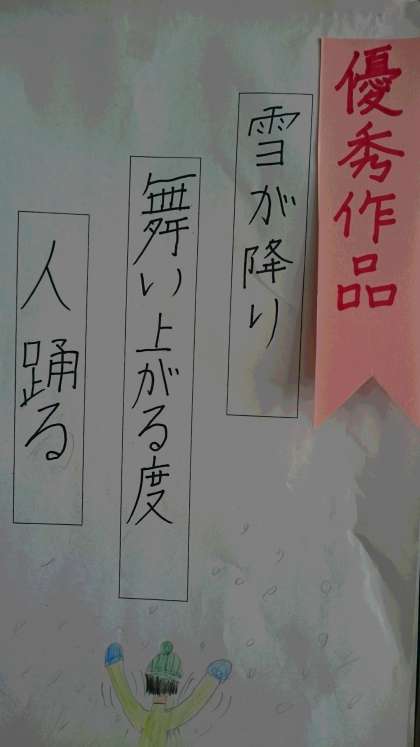 優秀作品
雪が降り
舞い上がる度
人踊る